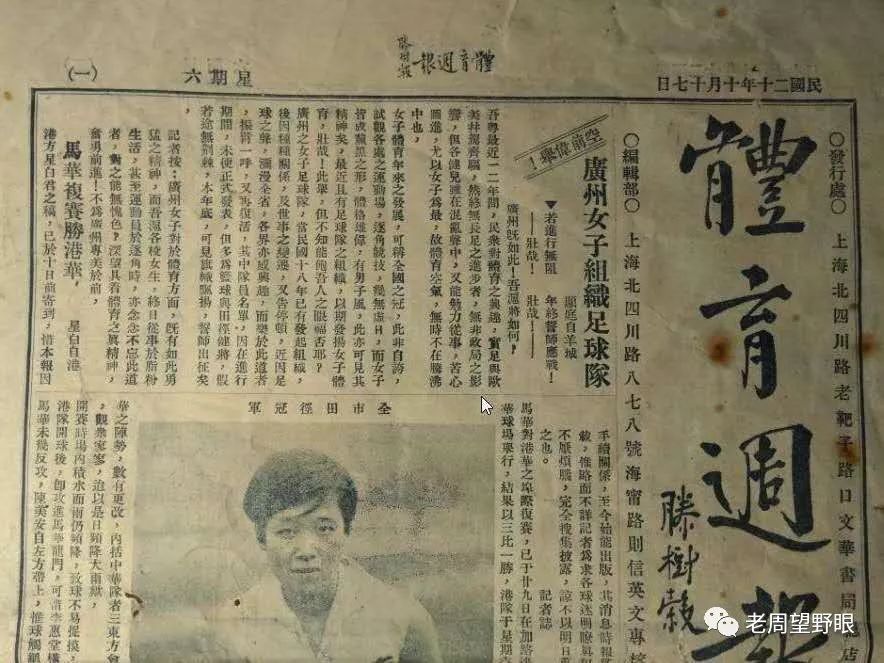 民國二十年十月十七日
體育週報
星期六
(一)
體育週報
滕樹穀
〇發行處〇 上海北四川路老靶子路口文華書局
〇編輯部〇 上海北四川路八七八號海甯路則信英文專校
空前偉舉！
廣州女子組織足球隊
▼若進行無阻 年終督師應戰！
——壯哉！ 壯哉！——
自羊城
廣州既如此！吾滬將如何？
吾粵最近一二年間，民衆對體育之興趣，實足與歐
美幷駕齊驅，然終無長足之進步者，無非政局之影
響，但各健兒雖在混亂聲中，又能勉力從事，苦心
圖進，尤以女子為最，故體育空氣，無時不在騰沸
中也，
女子體育年來之發展，可稱全國之冠，此非自誇，
試觀各處之運動場，逐角競技，幾無虛日，而女子
皆成黧黑之形，體格雄偉，有男子風，此亦可見其
精神矣，最近且有足球隊之組織，以期發揚女子體
育，壯哉！此舉，但不知能飽吾人之眼福否耶？
廣州之女子足球隊，當民國十八年已有發起組織，
後因種種關係，及世事之變遷，又告停頓，近因足
球之聲，瀰漫全省，各界亦感興趣，而樂於此道者
，振臂一呼，又再復活，其中隊員名單，因在進行
期間，未便正式發表，但多為籃球與田徑健將，假
若途無荊棘，本年底，可見旗幟飄揚，督師出征矣
，
記者按：廣州女子對於體育方面，既有如此勇
猛之精神，而吾滬各校女生，終日從事於脂粉
生活，甚至運動員於逐角時，亦念念不忘此道
者，對之能無愧色？深望具有體育之真精神，
奮勇前進！不為廣州專美於前，
馬華複賽勝港華， 星白自港
港方星白君之稿，已於十日前寄到，惜本報因
手續關係，至今始能出版，其消息時報
載，惟略而不詳記者為求各球迷明瞭
不厭煩瑣，完全搜集披露，諒不以明日
之也。 記者誌
馬華對港華之埠際復賽，已于廿九日在加路
華球場舉行，結果以三比一勝，港隊于星期
全市田徑冠軍
華之陣勢，數有更改，內括中華隊者三東方
，觀衆寥寥，迨以是日頻降大雨歟，
開賽時場內積水而雨仍頻降，致球不易捉摸，
港隊開球後，卽攻進馬華龍門，可惜李惠堂
馬華未幾反攻，陳美安自左方帶上，惟球觸
老周望野眼